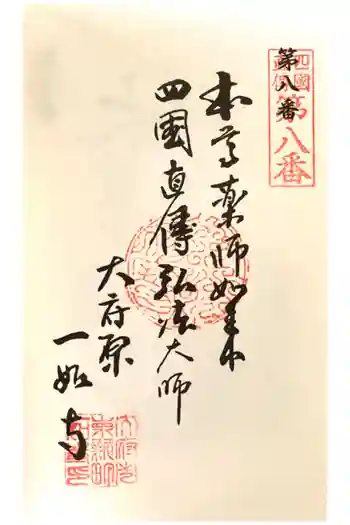 第八番
四國
直傳
第八番
本尊薬師如来
四國直傳弘法大師
大府原
一如寺